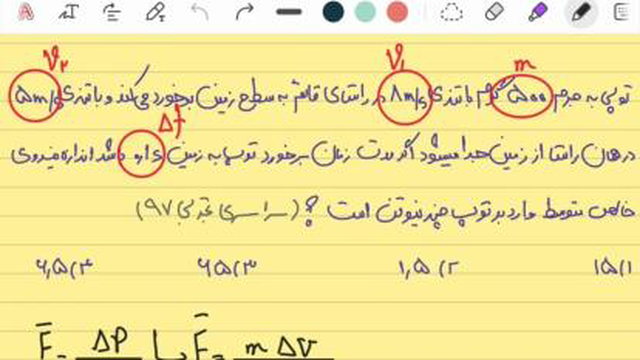 V₂ V₁ m
توپی به جرم ۵۰۰ گرم با تندی ۸m/s در راستای قائم به سطح زمین برخورد می‌کند و با تندی ۵m/s
Δt
در همان راستا از زمین جدا میشود اگر مدت زمان برخورد توپ به زمین ۰/۱s باشد اندازه نیروی
خالص متوسط وارد بر توپ چند نیوتن است ؟ (سراسری تجربی ۹۷)
۱) ۱۵ ۲) ۱,۵ ۳) ۶۵ ۴) ۶,۵
F̄ = ΔP ↳ F̄ = m ΔV